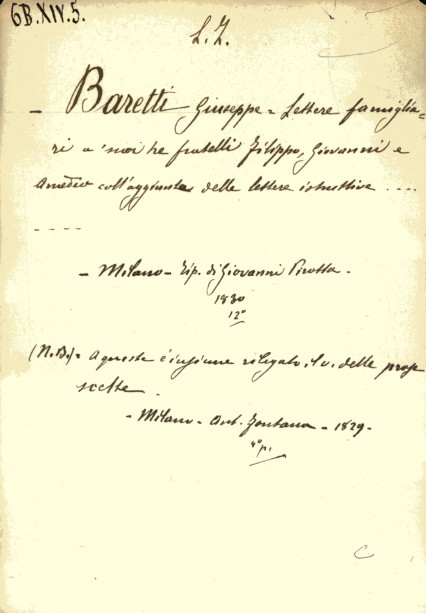 6B.XIV.5.
L. I.
- Baretti Giuseppe = Lettere famiglia=
ri a' suoi tre fratelli Filippo, Giovanni e
Amedeo coll'aggiunta delle lettere istruttive ....
- - - -
- Milano - Tip. di Giovanni Pirotta -
1830
12º
(N.B.) = A queste è insieme rilegato, il v. delle prose
scelte.
- Milano - Ant. Fontana - 1829 -
C